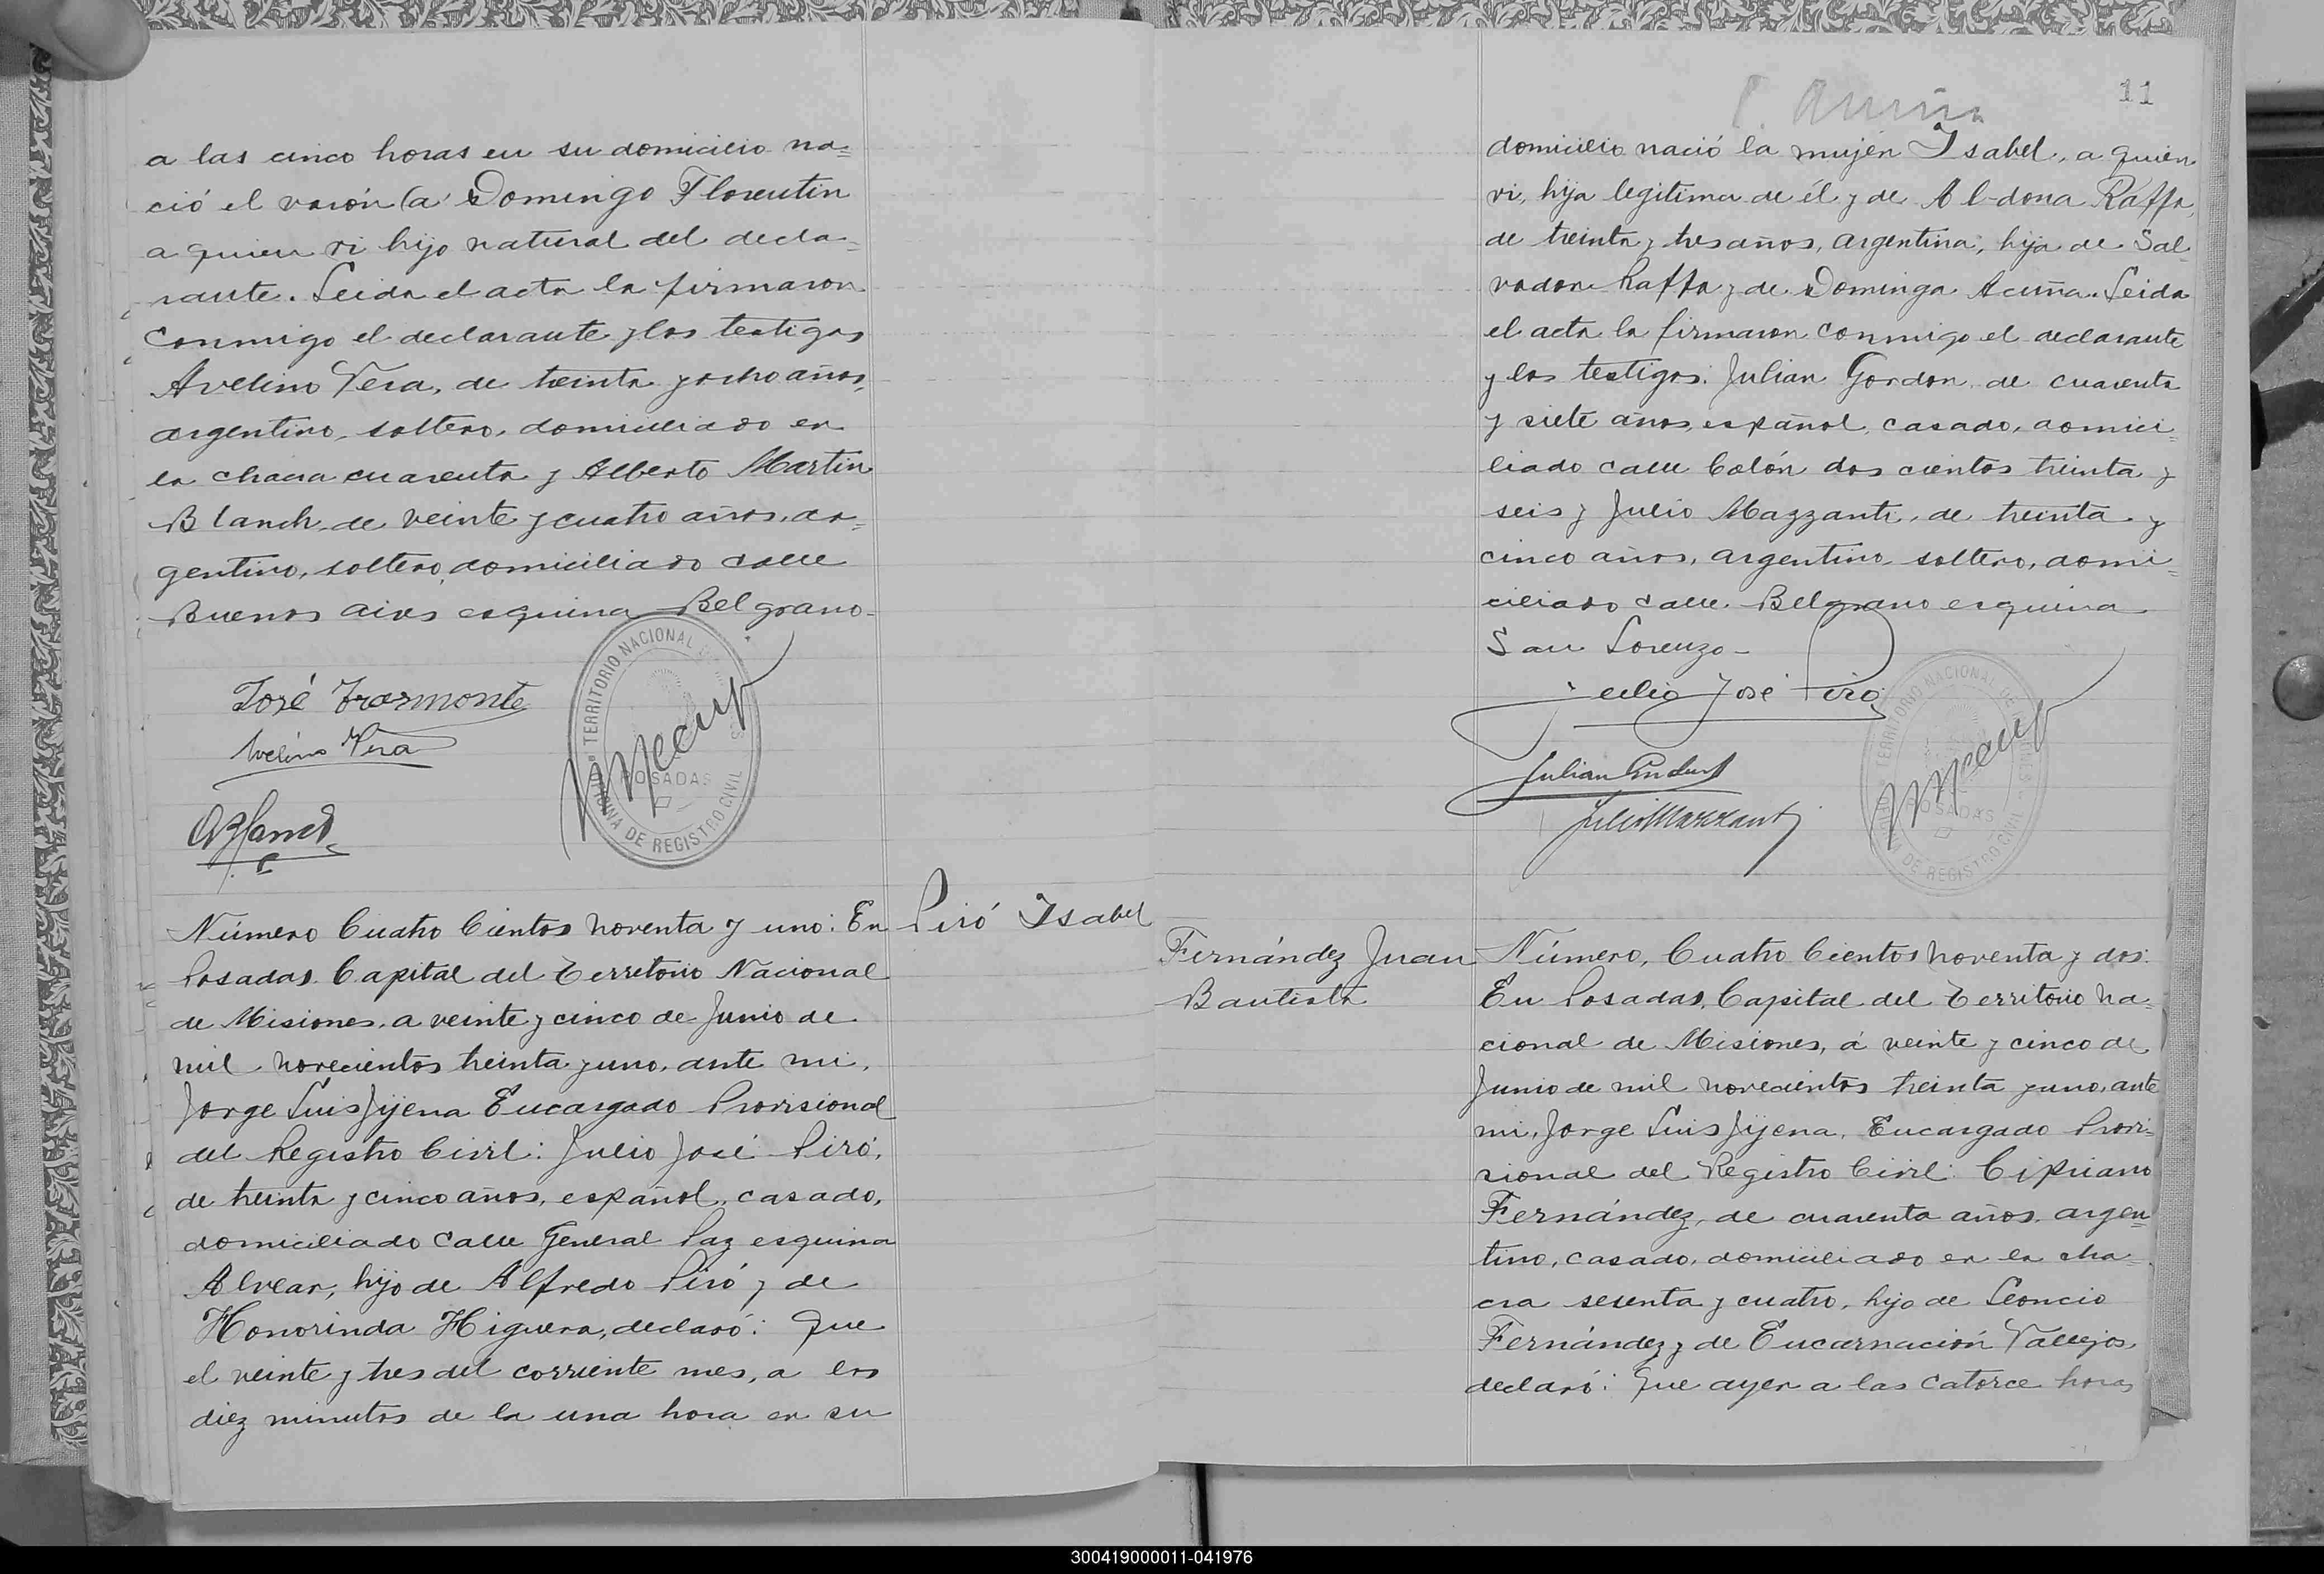 a las cinco horas en su domicilio na=
ció el varón (a Domingo Florentin
a quien vi hijo natural del decla=
rante. Leida el acta la firmaron
conmigo el declarante y los testigos
Avelino Vera, de treinta y ocho años,
argentino, soltero, domiciliado en
la chacra cuarenta y Alberto Martin
Blanch, de veinte y cuatro años, ar=
gentino, soltero, domiciliado calle
Buenos Aires esquina Belgrano-
TERRITORIO NACIONAL
José Tramonte
Avelino Vera
POSADAS
OFICINA DE REGISTRO CIVIL
ABlanch
Número Cuatro Cientos noventa y uno: En
Posadas Capital del Territorio Nacional
de Misiones, a veinte y cinco de Junio de
mil novecientos treinta y uno, ante mi,
Jorge Luis Jijena Encargado Provisional
del Registro Civil: Julio José Piró,
de treinta y cinco años, español, casado,
domiciliado calle General Paz esquina
Alvear, hijo de Alfredo Piró y de
Honorinda Higuera, declaró: Que
el veinte y tres del corriente mes, a los
diez minutos de la una hora en su
Piró Isabel
11
domicilio nació la mujer Isabel, a quien
vi, hija legitima de él y de Aldona Raffa,
de treinta y tres años, argentina, hija de Sal=
vador Raffa y de Dominga Acuña. Leida
el acta la firmaron conmigo el declarante
y los testigos: Julian Gordon, de cuarenta
y siete años, español, casado, domici=
liado calle Colón dos cientos treinta y
seis y Julio Mazzanti, de treinta y
cinco años, argentino, soltero, domi=
ciliado calle Belgrano esquina
San Lorenzo-
Julio José Piró
TERRITORIO NACIONAL DE MISIONES
Julian
Julio Mazzanti
POSADAS
OFICINA DE REGISTRO CIVIL
Fernández Juan
Bautista
Número, Cuatro Cientos noventa y dos:
En Posadas, Capital del Territorio Na=
cional de Misiones, á veinte y cinco de
Junio de mil novecientos treinta y uno, ante
mi, Jorge Luis Jijena, Encargado Provi=
sional del Registro Civil: Cipriano
Fernández, de cuarenta años, argen=
tino, casado, domiciliado en la cha=
cra sesenta y cuatro, hijo de Leoncio
Fernández y de Encarnación Vallejos,
declaró: Que ayer a las catorce horas
300419000011-041976